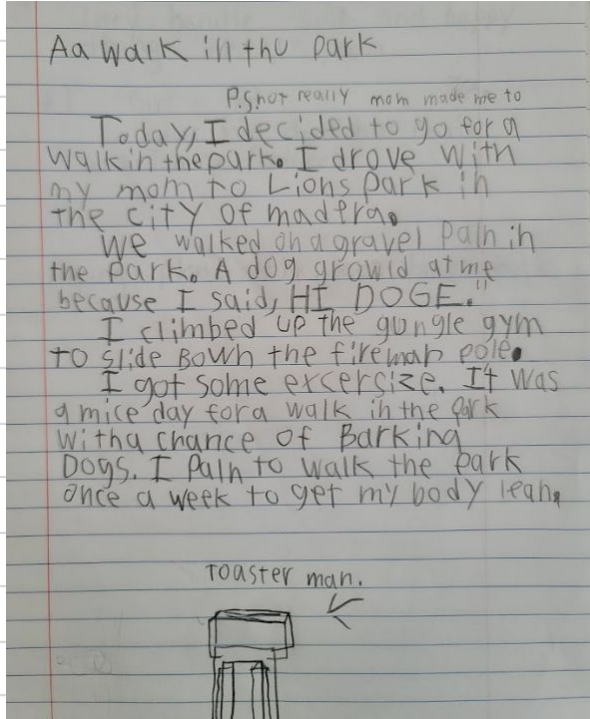 Aa walk in thu park
P.S. not really mom made me to
Today, I decided to go for a
walk in the park. I drove with
my mom to Lions park in
the city of madera.
We walked on a gravel path in
the park. A dog growld at me
because I said, HI DOGE."
I climbed up the gungle gym
to slide Bown the fireman pole.
I got some excersize. It was
a mice day for a walk in the park
with a chance of Barking
Dogs. I paln to walk the park
once a week to get my body lean.
Toaster man.